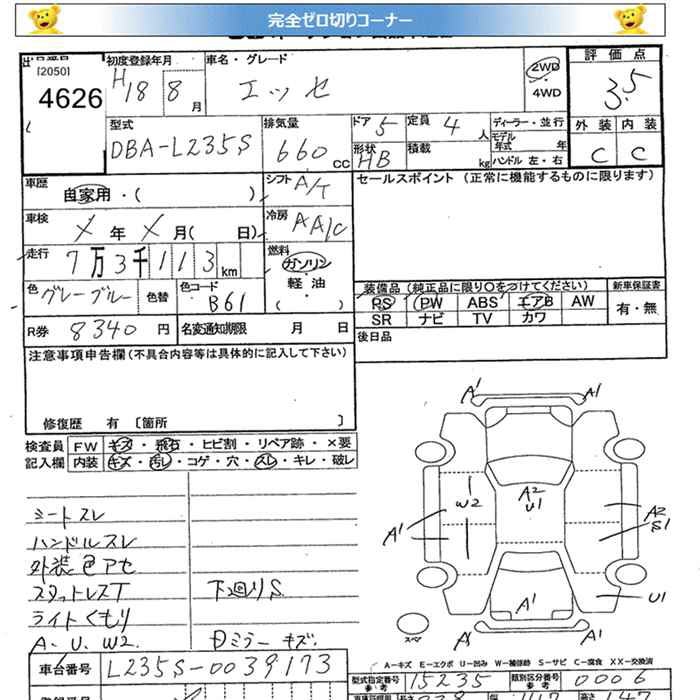 完全ゼロ切りコーナー
初度登録年月 車名・グレード 評価点
[2050] H18 8月 エッセ 2WD 3.5
4626 4WD
型式 排気量 ドア 5 定員 4人 ディーラー・並行 外装 内装
DBA-L235S 660cc 形状 HB 積載 kg モデル年式 年 ハンドル 左・右 C C
車歴 自家用・( ) シフト A/T セールスポイント (正常に機能するものに限ります)
車検 X年 X月( 日) 冷房 AA/C
走行 7万3千113km 燃料 ガソリン
軽油
( )
色 グレーブルー 色替 色コード B61
装備品(純正品に限り○をつけてください) 新車保証書
PS PW ABS エアB AW 有・無
SR ナビ TV カワ
R券 8340円 名変通知期限 月 日 後日品
注意事項申告欄(不具合内容等は具体的に記入して下さい)
修復歴 有 〔箇所 〕
検査員 FW キズ・飛石・ヒビ割・リペア跡・×要
記入欄 内装 キズ・汚レ・コゲ・穴・スレ・キレ・破レ
シートスレ
ハンドルスレ
外装色アセ
スタットレスT 下廻りS
ライトくもり
A、U、W2 Dミラーキズ
A1 A1
W2 A2 U1 A2
A1 S1
A1 U1
スペア A1 A1
A-キズ E-エクボ U-凹み W-補修跡 S-サビ C-腐食 XX-交換済
車台番号 L235S-0039173 型式指定番号 参考 15235 類別区分番号 参考 0006